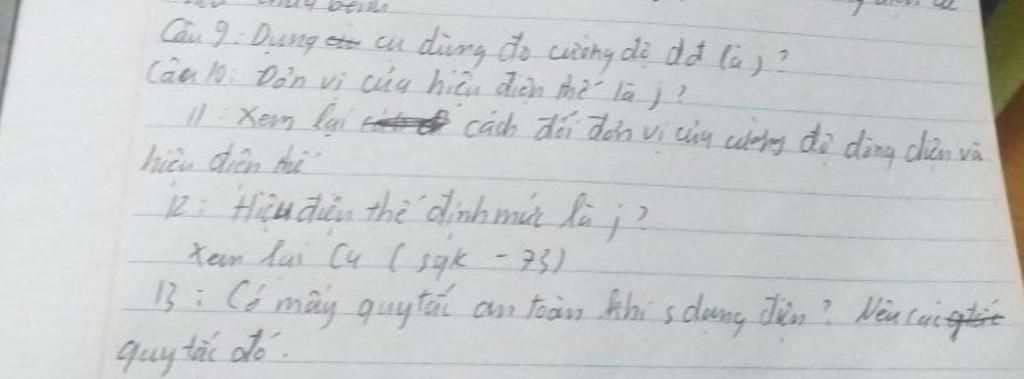 Câu 9: Dụng cụ dùng đo cường độ dđ là j?
Câu 10: Đơn vị của hiệu điện thế là j?
11: Xem lại cách đổi đơn vị của cường độ dòng điện và
hiệu điện thế
12: Hiệu điện thế định mức là j?
Xem lại C4 (sgk - 73)
13: Có mấy quy tắc an toàn khi s dụng điện? Nêu các
quy tắc đó.